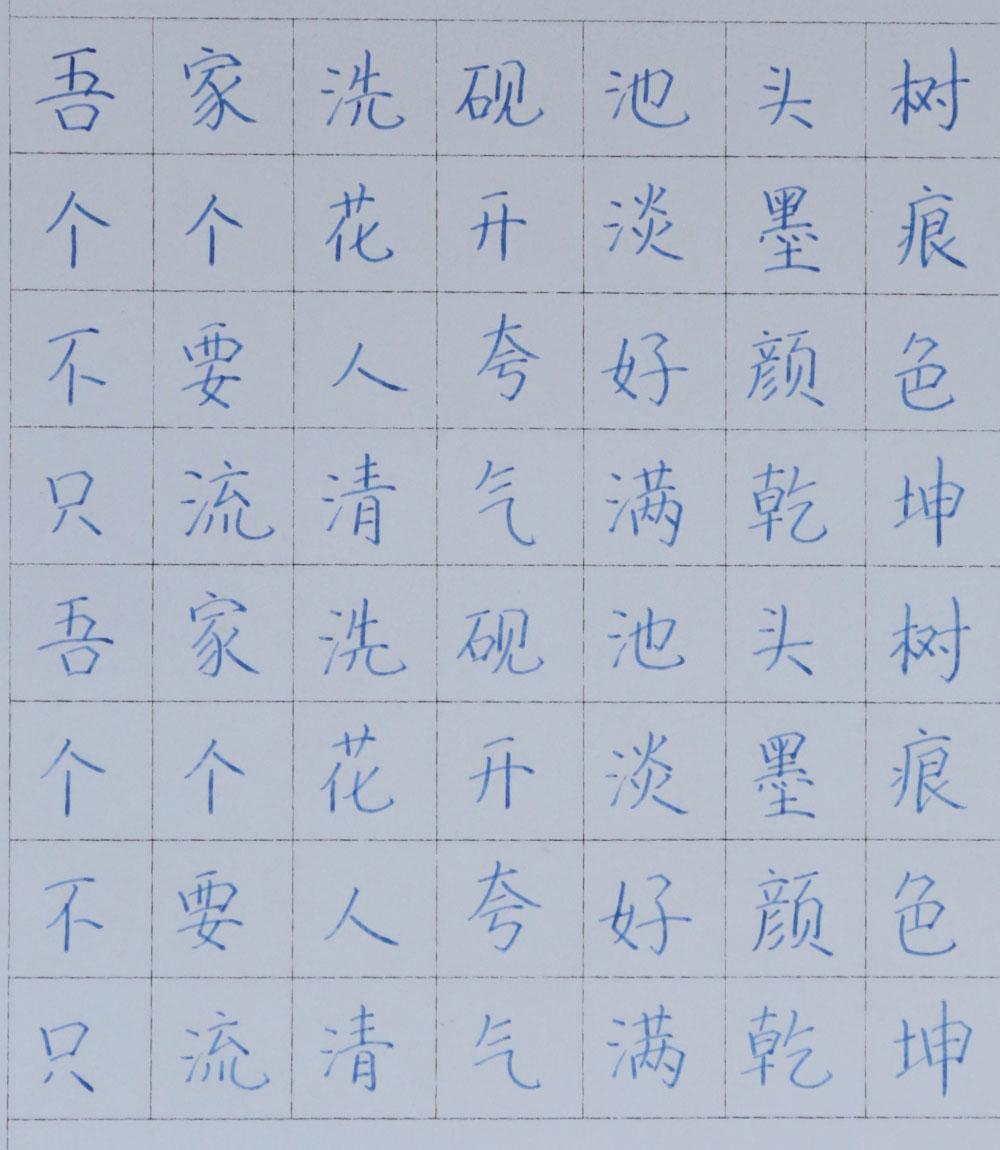 吾家洗砚池头树
个个花开淡墨痕
不要人夸好颜色
只流清气满乾坤
吾家洗砚池头树
个个花开淡墨痕
不要人夸好颜色
只流清气满乾坤